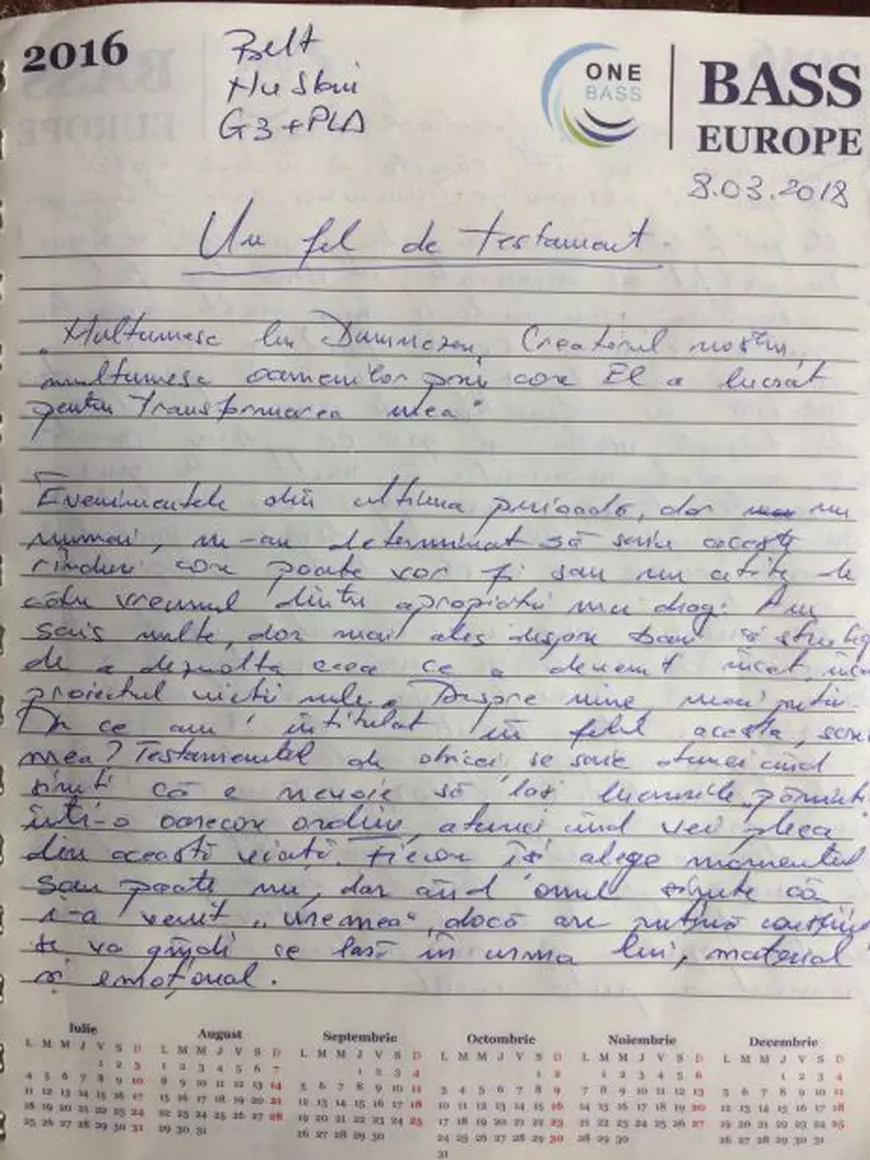 2016
Belt
G3+PLA
ONE
BASS
BASS
EUROPE
8.03.2018
Un fel de testament.
„Multumesc lui Dumnezeu, Creatorul nostru,
multumesc oamenilor prin care El a lucrat
pentru transformarea mea"
Evenimentele din ultima perioada, dar nu
numai, m-au determinat să scriu aceste
rînduri care poate vor fi sau nu citite de
către vreunul dintre apropiații mei dragi. Am
scris multe, dar mai ales despre
de a dezvolta ceea ce a devenit încet, încet
proiectul vieții mele. Despre mine, mai puțin.
De ce am intitulat în felul acesta,
mea? Testamentul de obicei se scrie atunci cînd
simți că e nevoie să lași lucrurile
într-o oarecare ordine, atunci cînd vei pleca
din această viață. Fiecare își alege momentul
sau poate nu, dar cînd omul simte că
i-a venit „vremea", dacă are puțină
se va gîndi ce lasă în urma lui, material
și emoțional.
Iulie
L M M J V S D
1 2 3
4 5 6 7 8 9 10
11 12 13 14 15 16 17
18 19 20 21 22 23 24
25 26 27 28 29 30 31
August
L M M J V S D
1 2 3 4 5 6 7
8 9 10 11 12 13 14
15 16 17 18 19 20 21
22 23 24 25 26 27 28
29 30 31
Septembrie
L M M J V S D
1 2 3 4
5 6 7 8 9 10 11
12 13 14 15 16 17 18
19 20 21 22 23 24 25
26 27 28 29 30
Octombrie
L M M J V S D
1 2
3 4 5 6 7 8 9
10 11 12 13 14 15 16
17 18 19 20 21 22 23
24 25 26 27 28 29 30
31
Noiembrie
L M M J V S D
1 2 3 4 5 6
7 8 9 10 11 12 13
14 15 16 17 18 19 20
21 22 23 24 25 26 27
28 29 30
Decembrie
L M M J V S D
1 2 3 4
5 6 7 8 9 10 11
12 13 14 15 16 17 18
19 20 21 22 23 24 25
26 27 28 29 30 31